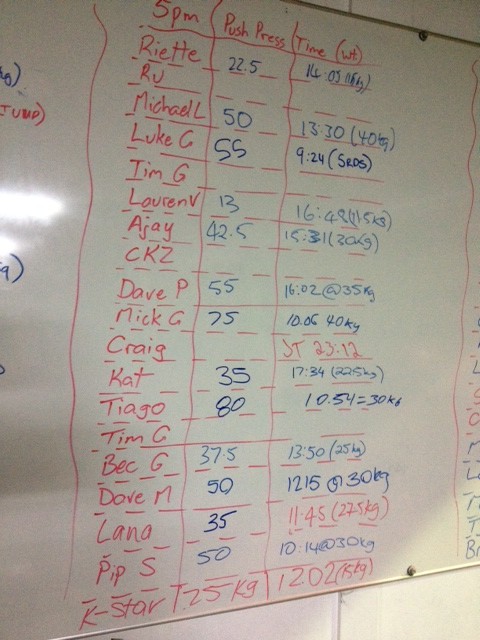 5pm Push Press Time (wt)
Riette 22.5 14:05
Ru
Michael L 50 13:30 (40kg)
Luke G 55 9:24 (5RDS)
Tim G
Lauren V 13 16:48 (15kg)
Ajay 42.5 15:31 (30kg)
CKZ
Dave P 55 16:02 @ 35kg
Mick G 75 10.06 40kg
Craig ST 23:12
Kat 35 17:34 (22.5kg)
Tiago 80 10.54 = 30kg
Tim G
Bec G 37.5 13:50 (25kg)
Dave M 50 1215 @ 30kg
Lana 35 11:45 (27.5kg)
Pip S 50 10:14 @ 30kg
K-Star 25 kg 1202 (15kg)
JUMP)